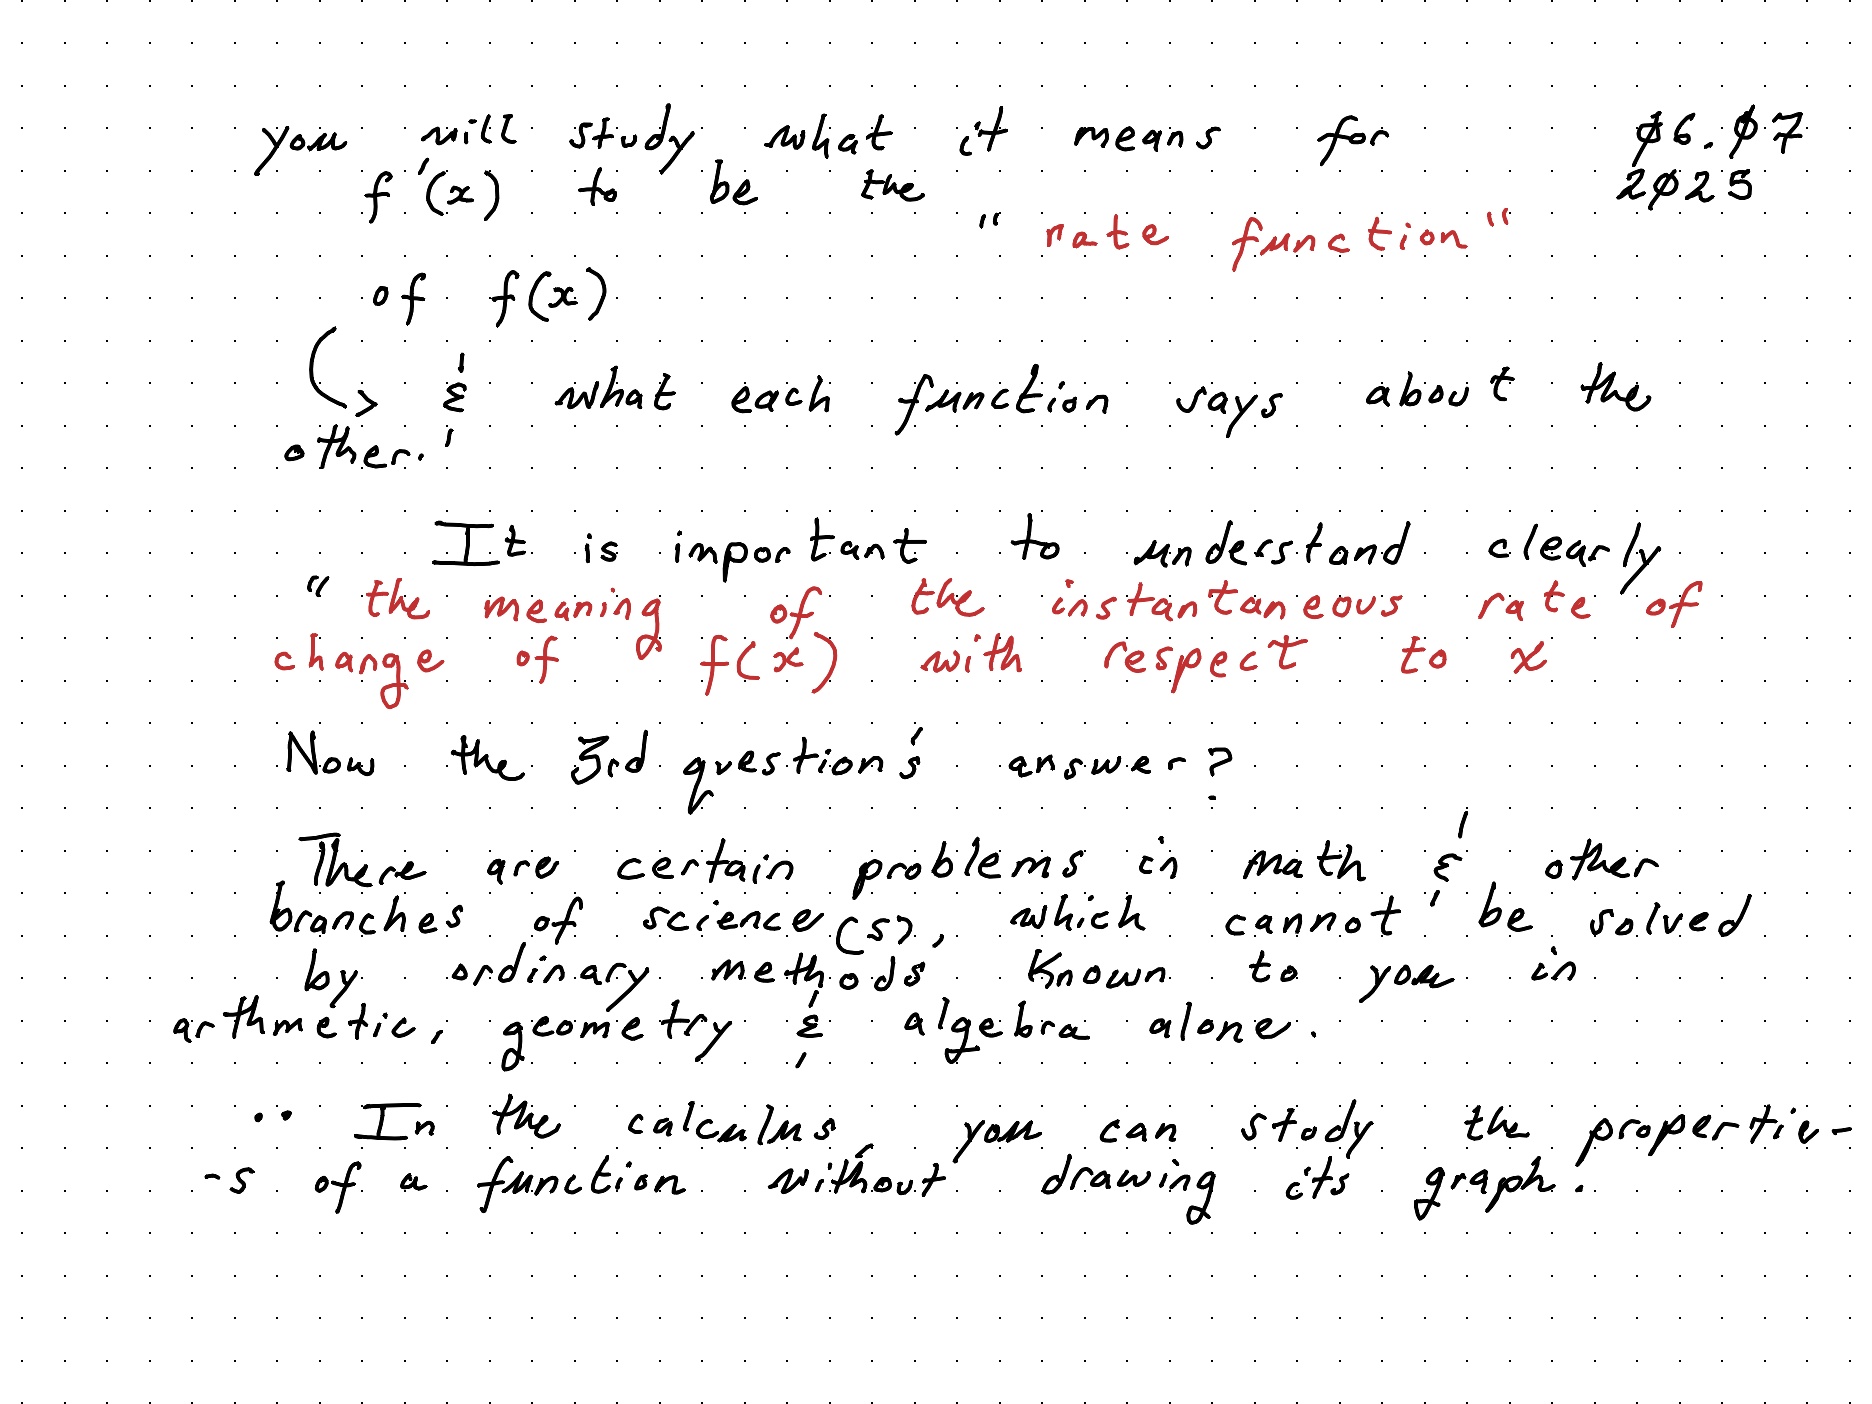 you will study what it means for
ø6.ø7
2ø25
f'(x) to be the
"rate function"
of f(x)
& what each function says about the
other.
It is important to understand clearly
"the meaning of the instantaneous rate of
change of f(x) with respect to x
Now the 3rd question's answer?
There are certain problems in math & other
branches of science(s), which cannot be solved
by ordinary methods known to you in
arthmetic, geometry & algebra alone.
·· In the calculus, you can study the propertie-
-s of a function without drawing its graph.